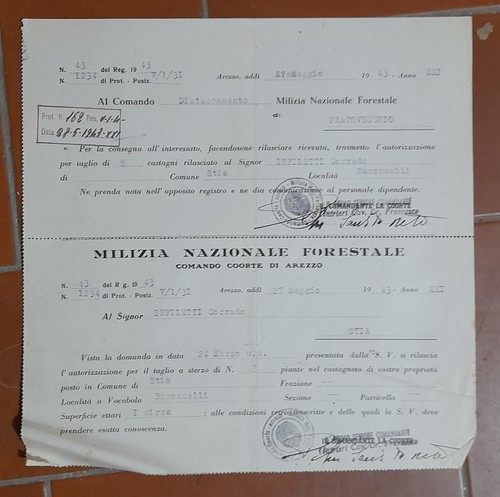 N. 43 del Reg. 19 43
N. 1234 di Prot. - Posiz. V/1/31 Arezzo, addì 27 Maggio 19 43 - Anno XXI
Al Comando Distaccamento Milizia Nazionale Forestale
di
PRATOVECCHIO
Prot. N. 168 Pos.
Data 28-5-1943-XXI
Per la consegna all'interessato, facendosene rilasciare ricevuta, trasmetto l'autorizzazione
per taglio di 8 castagni rilasciato al Signor INFILATTI Corrado
di Comune Stia Località Baroncelli
Ne prenda nota nell'apposito registro e ne dia comunicazione al personale dipendente.
IL COMANDANTE LA COORTE
MILIZIA NAZIONALE FORESTALE
COMANDO COORTE DI AREZZO
N. 43 del Rg. 19 43
N. 1234 di Prot. - Posiz. V/1/31 Arezzo, addì 27 Maggio 19 43 - Anno XXI
Al Signor INFILATTI Corrado
STIA
Vista la domanda in data 24 Marzo u.s. presentata dalla S. V. si rilascia
l'autorizzazione per il taglio a sterzo di N. 8 piante nel castagneto di vostra proprietà
posto in Comune di Stia Frazione --
Località o Vocabolo Baroncelli Sezione -- Particella --
Superficie ettari I circa ; alle condizioni retroinscritte e delle quali la S. V. deve
prendere esatta conoscenza.
IL COMANDANTE LA COORTE